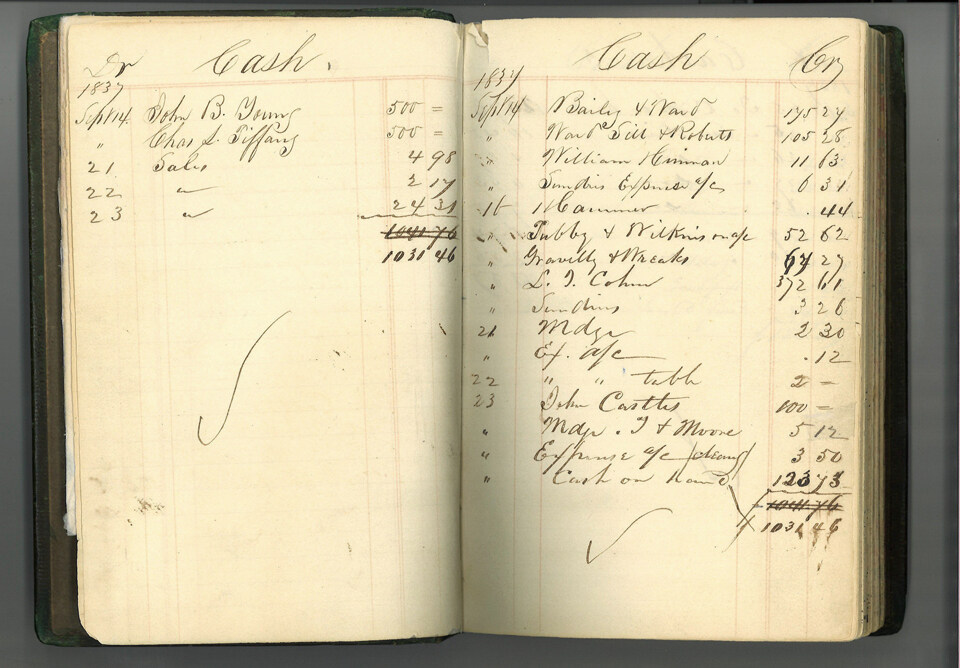 Dr Cash.
1837
Sept 14. John B. Young 500 =
" Chas L. Tiffany 500 =
21 Sales 4 98
22 " 2 17
23 " 24 31
1041 76
1031 46
1837 Cash Cr
Sept 14 Baily & Ward 175 27
" Ward Sill & Roberts 105 28
" William Hinman 11 63
" Sundries Expense a/c 6 31
15 Hammer . 44
" Tubby & Wilkins on a/c 52 62
" & Wreaks 67 27
" L. I. Cohen 372 61
" Sundries 3 26
21 Mdse 2 30
" Ex. a/c . 12
22 " " table 2 =
23 John Castles 100 =
" Mdse . T & Moore 5 12
" Expense a/c 3 50
" Cash on hand 123 73
1041 76
1031 46